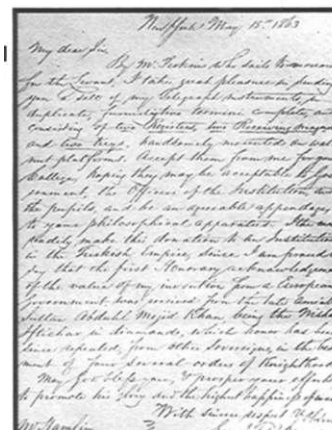 New York May 15th 1863
My dear Sir,
By Mr. Perkins who sails tomorrow
for the Levant, I take great pleasure in sending
you a sett of my Telegraph instruments, in
duplicate, furnishing two termini complete, and
consisting of two Registers, two Receiving magnets
and two keys, handsomely mounted on wal-
nut platforms. Accept them from me for your
College. Hoping they may be acceptable to
the Officers of the Institution, and
the pupils, and be an agreable appendage
to your philosophical apparatus. I the more
readily make this donation to an Institution
in the Turkish Empire, since I am proud to
say that the first Honorary acknowledgment
of the value of my invention from a European
Government was received from the late
Sultan Abdulul Mejid Khan, being the Nishan
Iftichar in diamonds, which honor has been
since repeated, from other Sovereigns, in the
ment of four several orders of Knighthood
May God bless you, & prosper your efforts
to promote his glory and the highest happiness of
With sincere respect &
Mr Hamlin